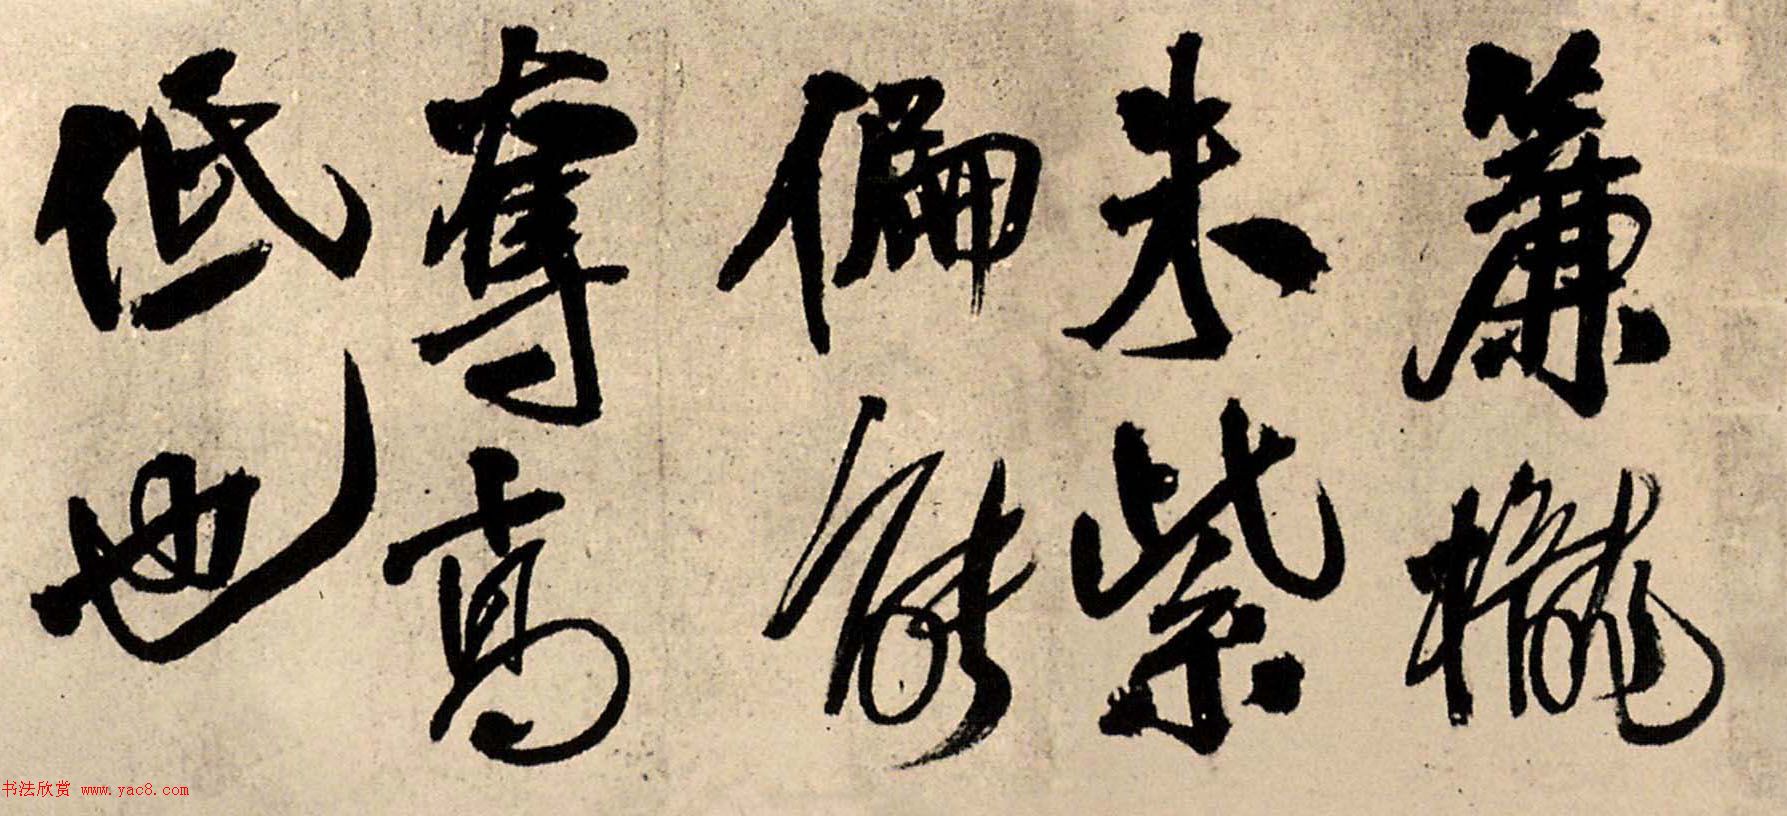 簾櫳
朱紫
偏能
奪高
低也
书法欣赏 www.yac8.com